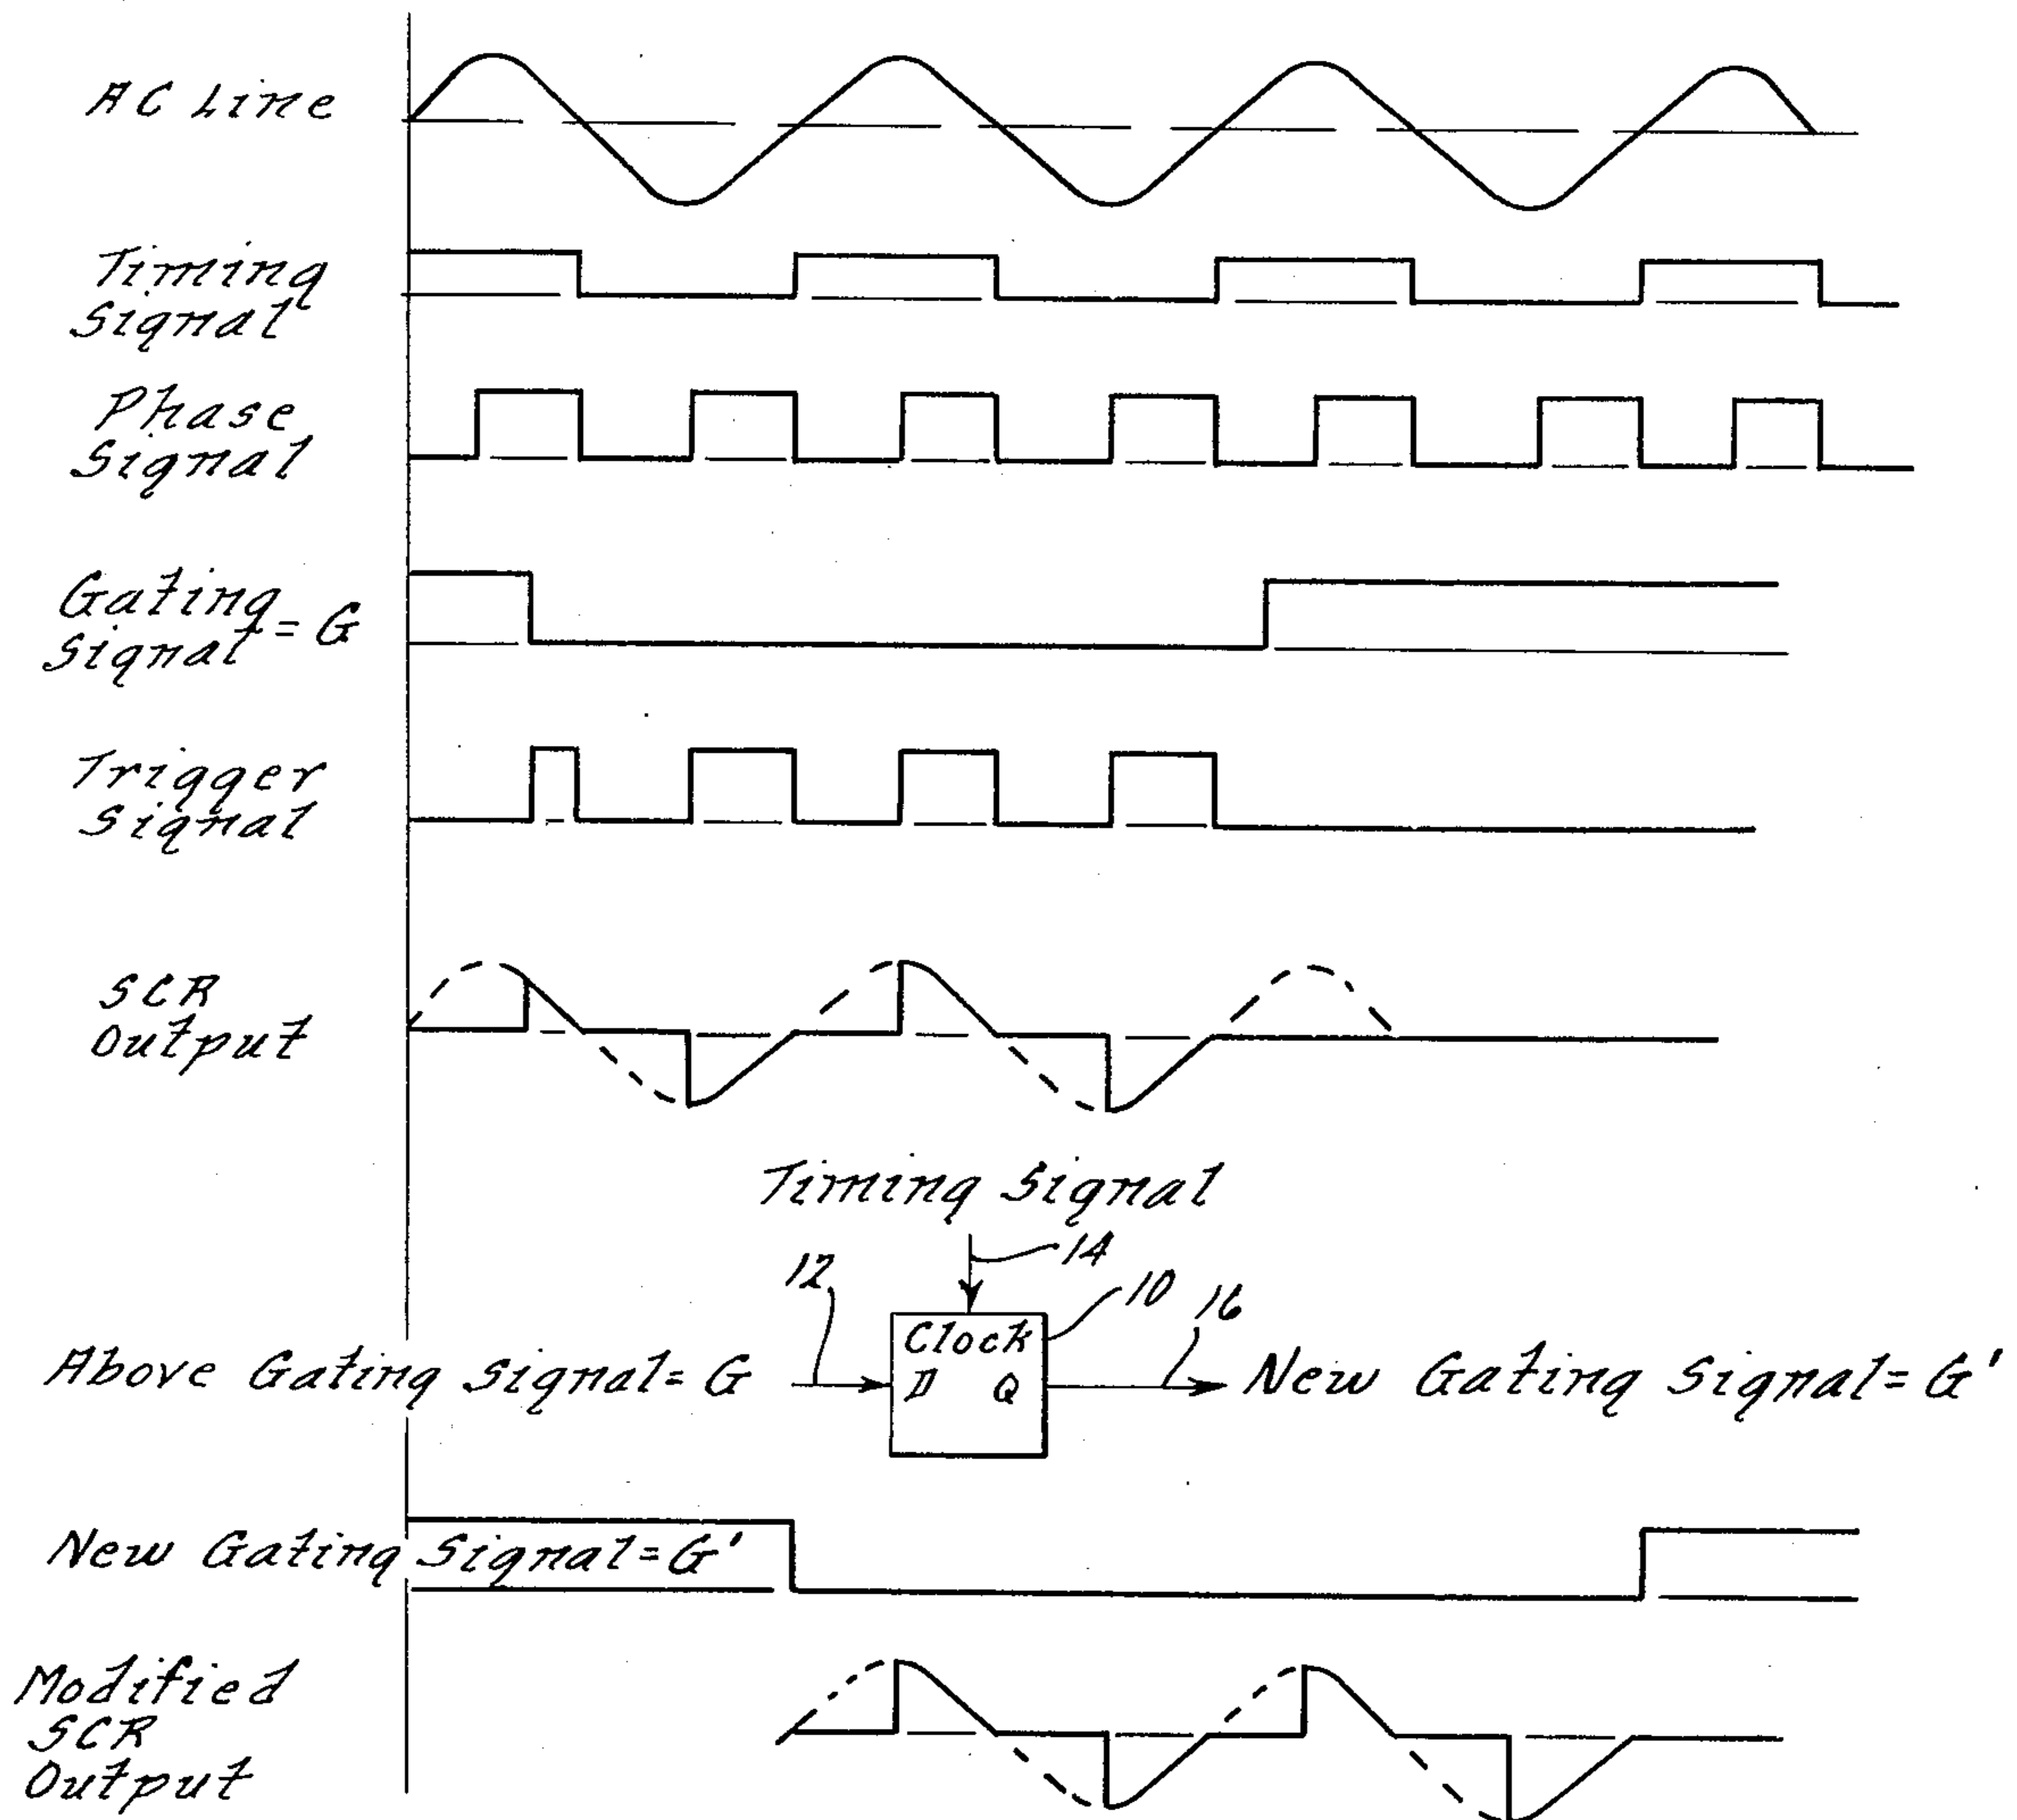 AC Line
Timing
Signal
Phase
Signal
Gating
Signal = G
Trigger
Signal
SCR
Output
Timing Signal
14
12
10
16
Clock
Above Gating Signal = G
D Q
New Gating Signal = G'
New Gating Signal = G'
Modified
SCR
Output